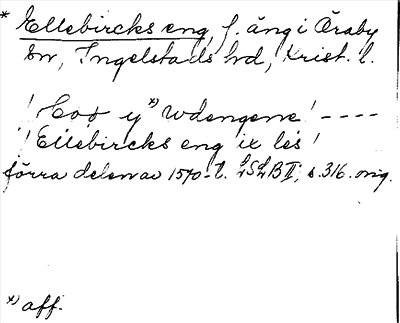 * Ellebircks eng, f. äng i Öraby
sn, Ingelstads hd, Krist. l.
! Cos y x) Wdengerne! - - - -
! Ellebircks eng ix les!
förra delen av 1570-t. LSLB II, s. 316. orig.
x) aff.